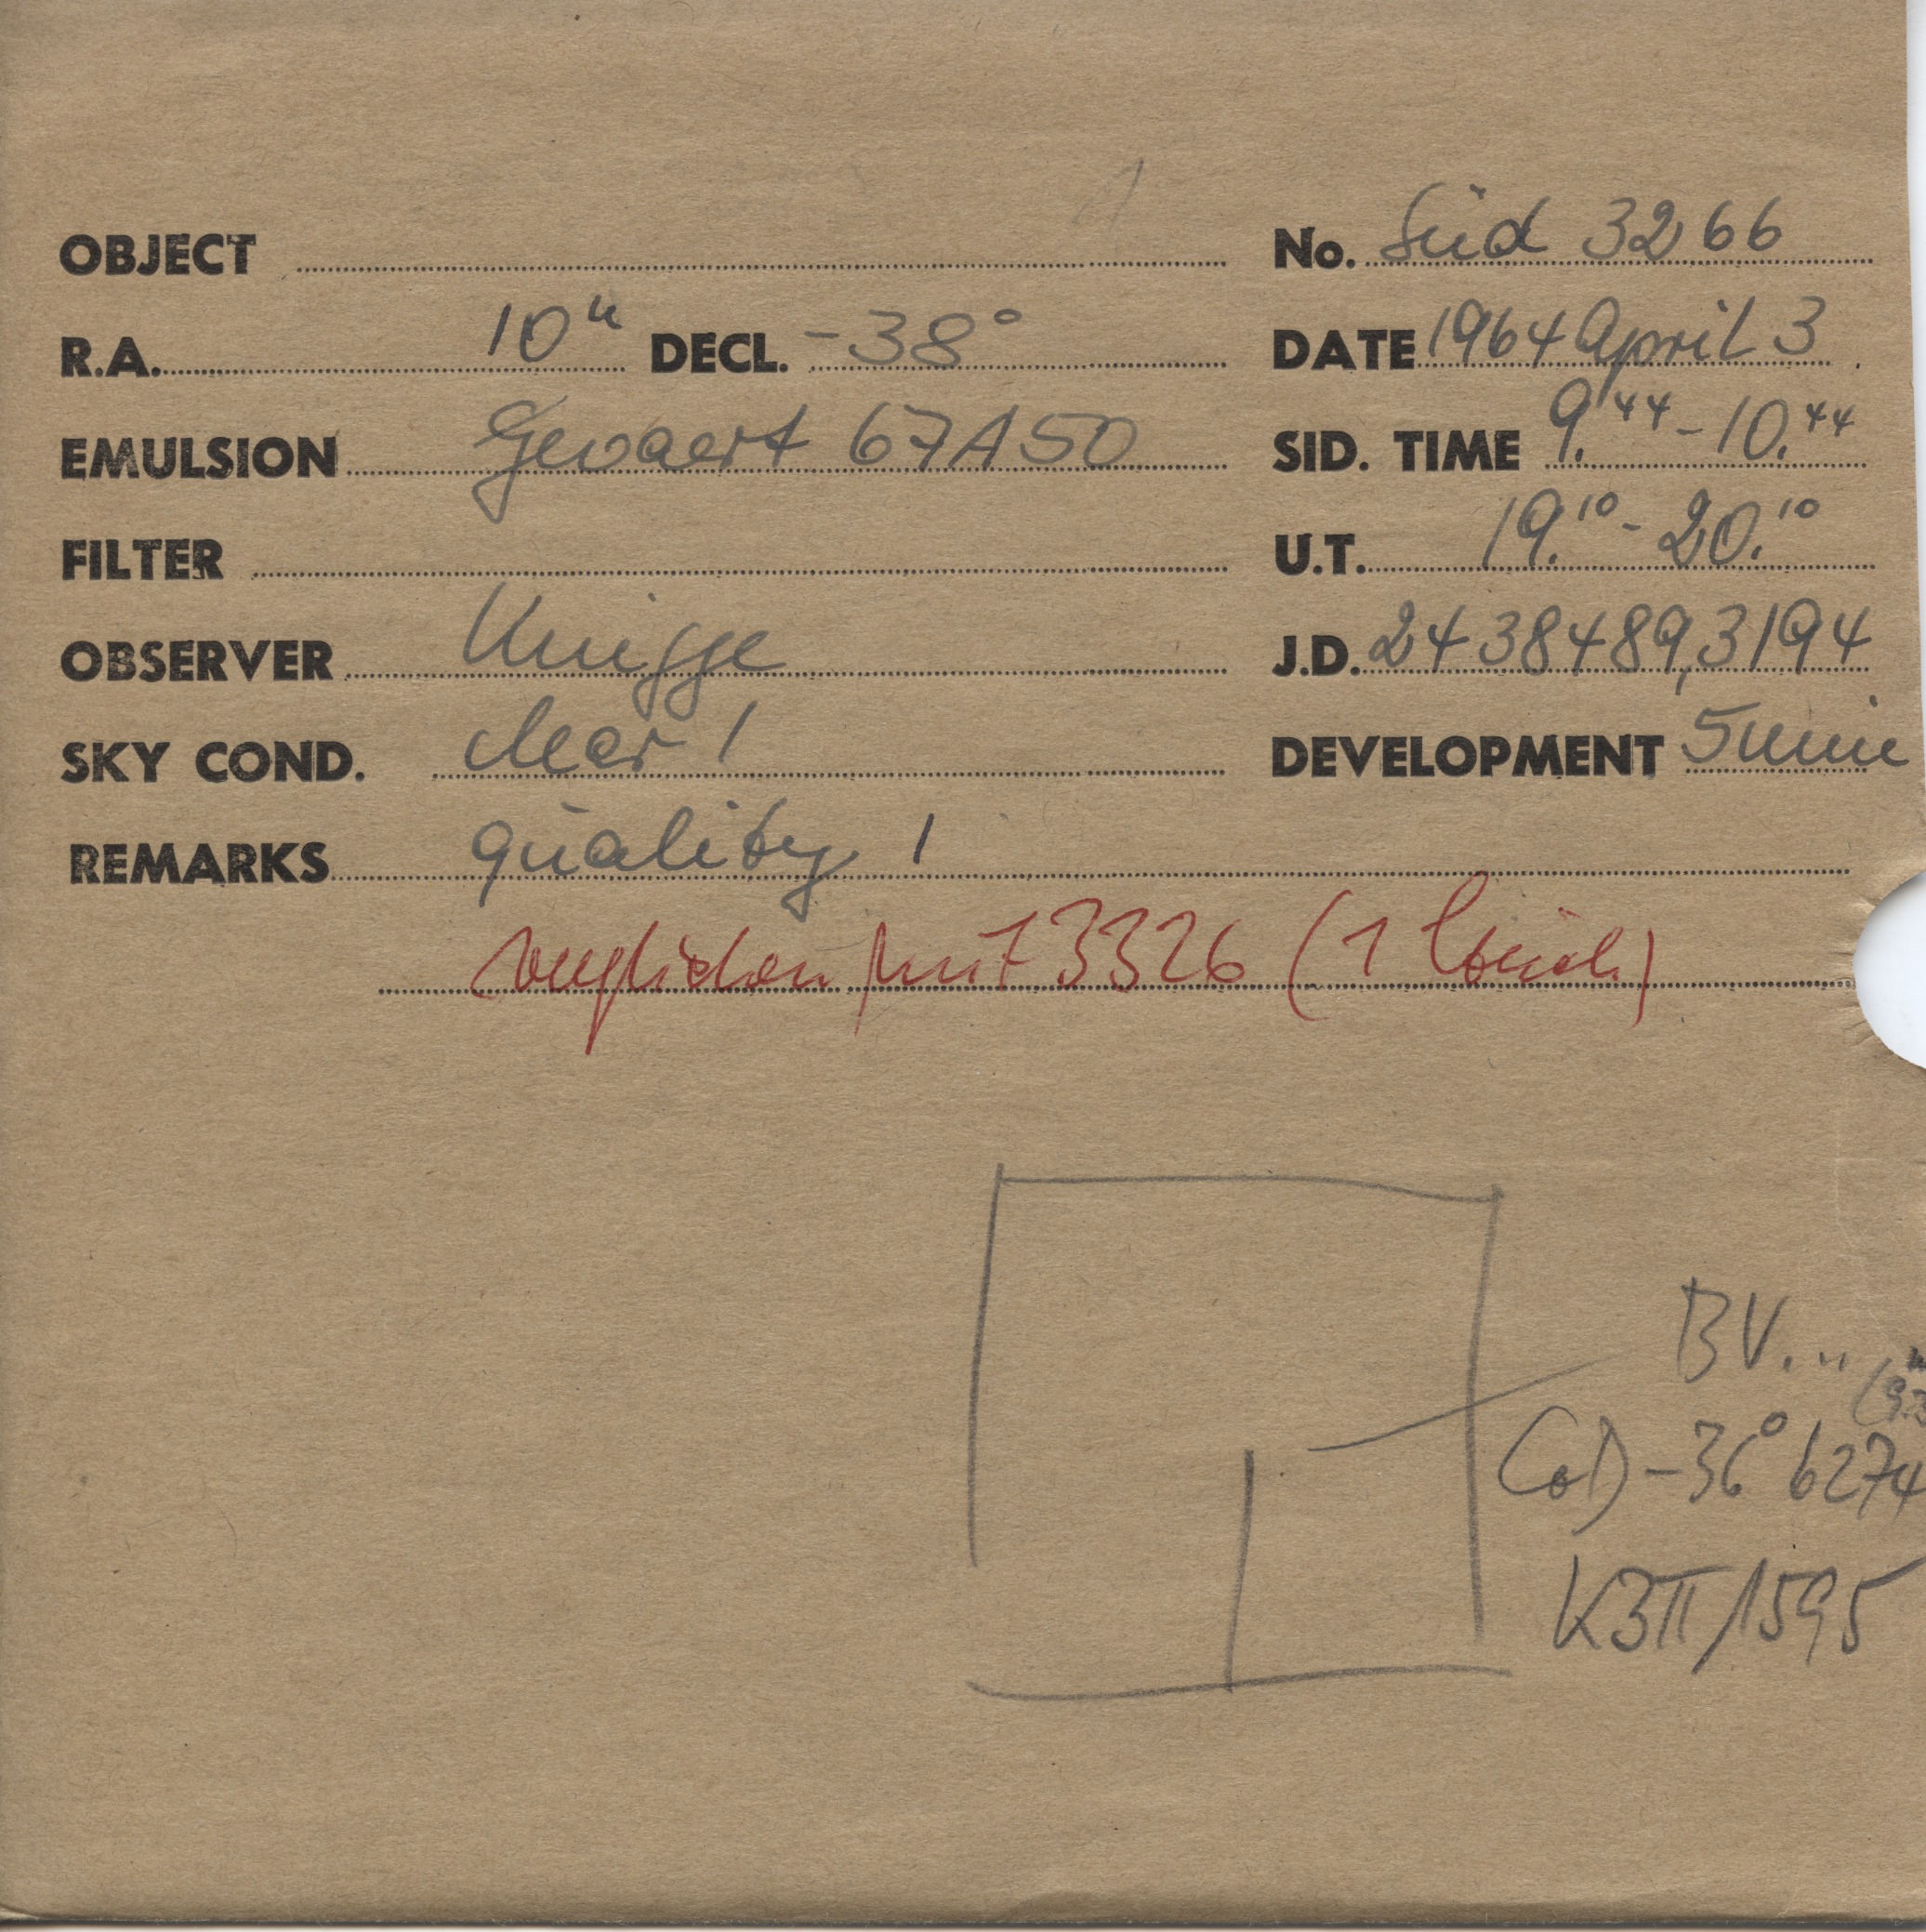 OBJECT No. Süd 3266
R.A. 10h DECL. -38° DATE 1964 April 3
EMULSION Gevaert 67A50 SID. TIME 9.44 - 10.44
FILTER U.T. 19.10 - 20.10
OBSERVER Knigge J.D. 2438489,3194
SKY COND. clear 1 DEVELOPMENT 5 min
REMARKS quality 1
verglichen mit 3326 (1
BV...
CoD -36° 6274
K3π/1595